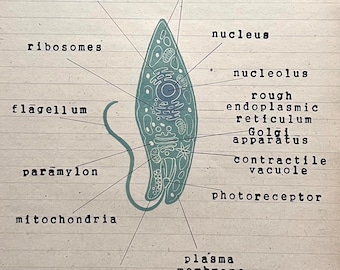 ribosomes
nucleus
nucleolus
rough
endoplasmic
reticulum
flagellum
Golgi
apparatus
contractile
vacuole
paramylon
photoreceptor
mitochondria
plasma
membrane